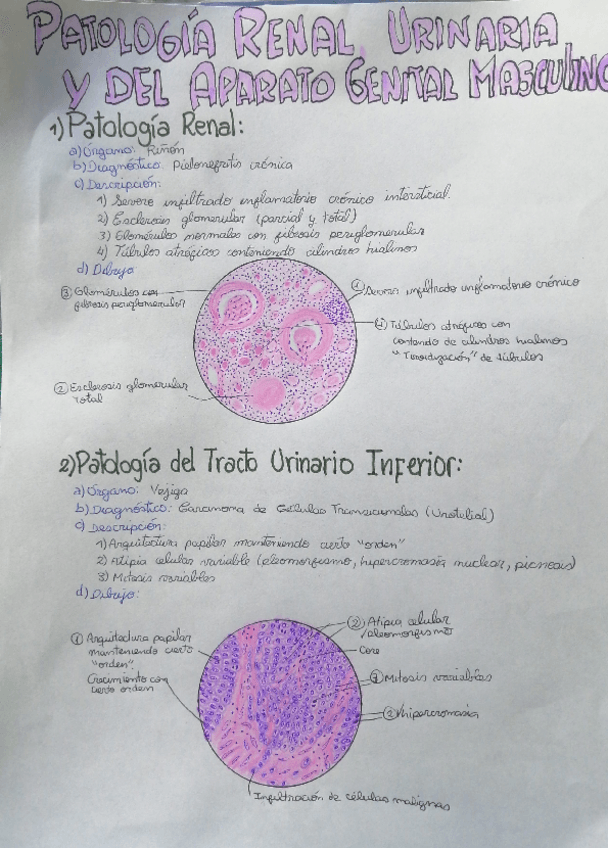 PATOLOGÍA RENAL, URINARIA
Y DEL APARATO GENITAL MASCULINO
1) Patología Renal:
a) Órgano: Riñón
b) Diagnóstico: Pielonefritis crónica
c) Descripción:
1) Severo infiltrado inflamatorio crónico intersticial.
2) Esclerosis glomerular (parcial y total)
3) Glomérulos normales con fibrosis periglomerular
4) Túbulos atróficos conteniendo cilindros hialinos
d) Dibujo
③ Glomérulos con
fibrosis periglomerular
① Severo infiltrado inflamatorio crónico
④ Túbulos atróficos con
contenido de cilindros hialinos
"Tiroidización" de túbulos
② Esclerosis glomerular
total
2) Patología del Tracto Urinario Inferior:
a) Órgano: Vejiga
b) Diagnóstico: Carcinoma de Células Transicionales (Urotelial)
c) Descripción:
1) Arquitectura papilar manteniendo cierto "orden"
2) Atipia celular variable (pleomorfismo, hipercromasia nuclear, picnosis)
3) Mitosis variables
d) Dibujo:
① Arquitectura papilar
manteniendo cierto
"orden".
Crecimiento con
cierto orden
② Atipia celular
pleomorfismo
Core
③ Mitosis variables
② hipercromasia
Infiltración de células malignas